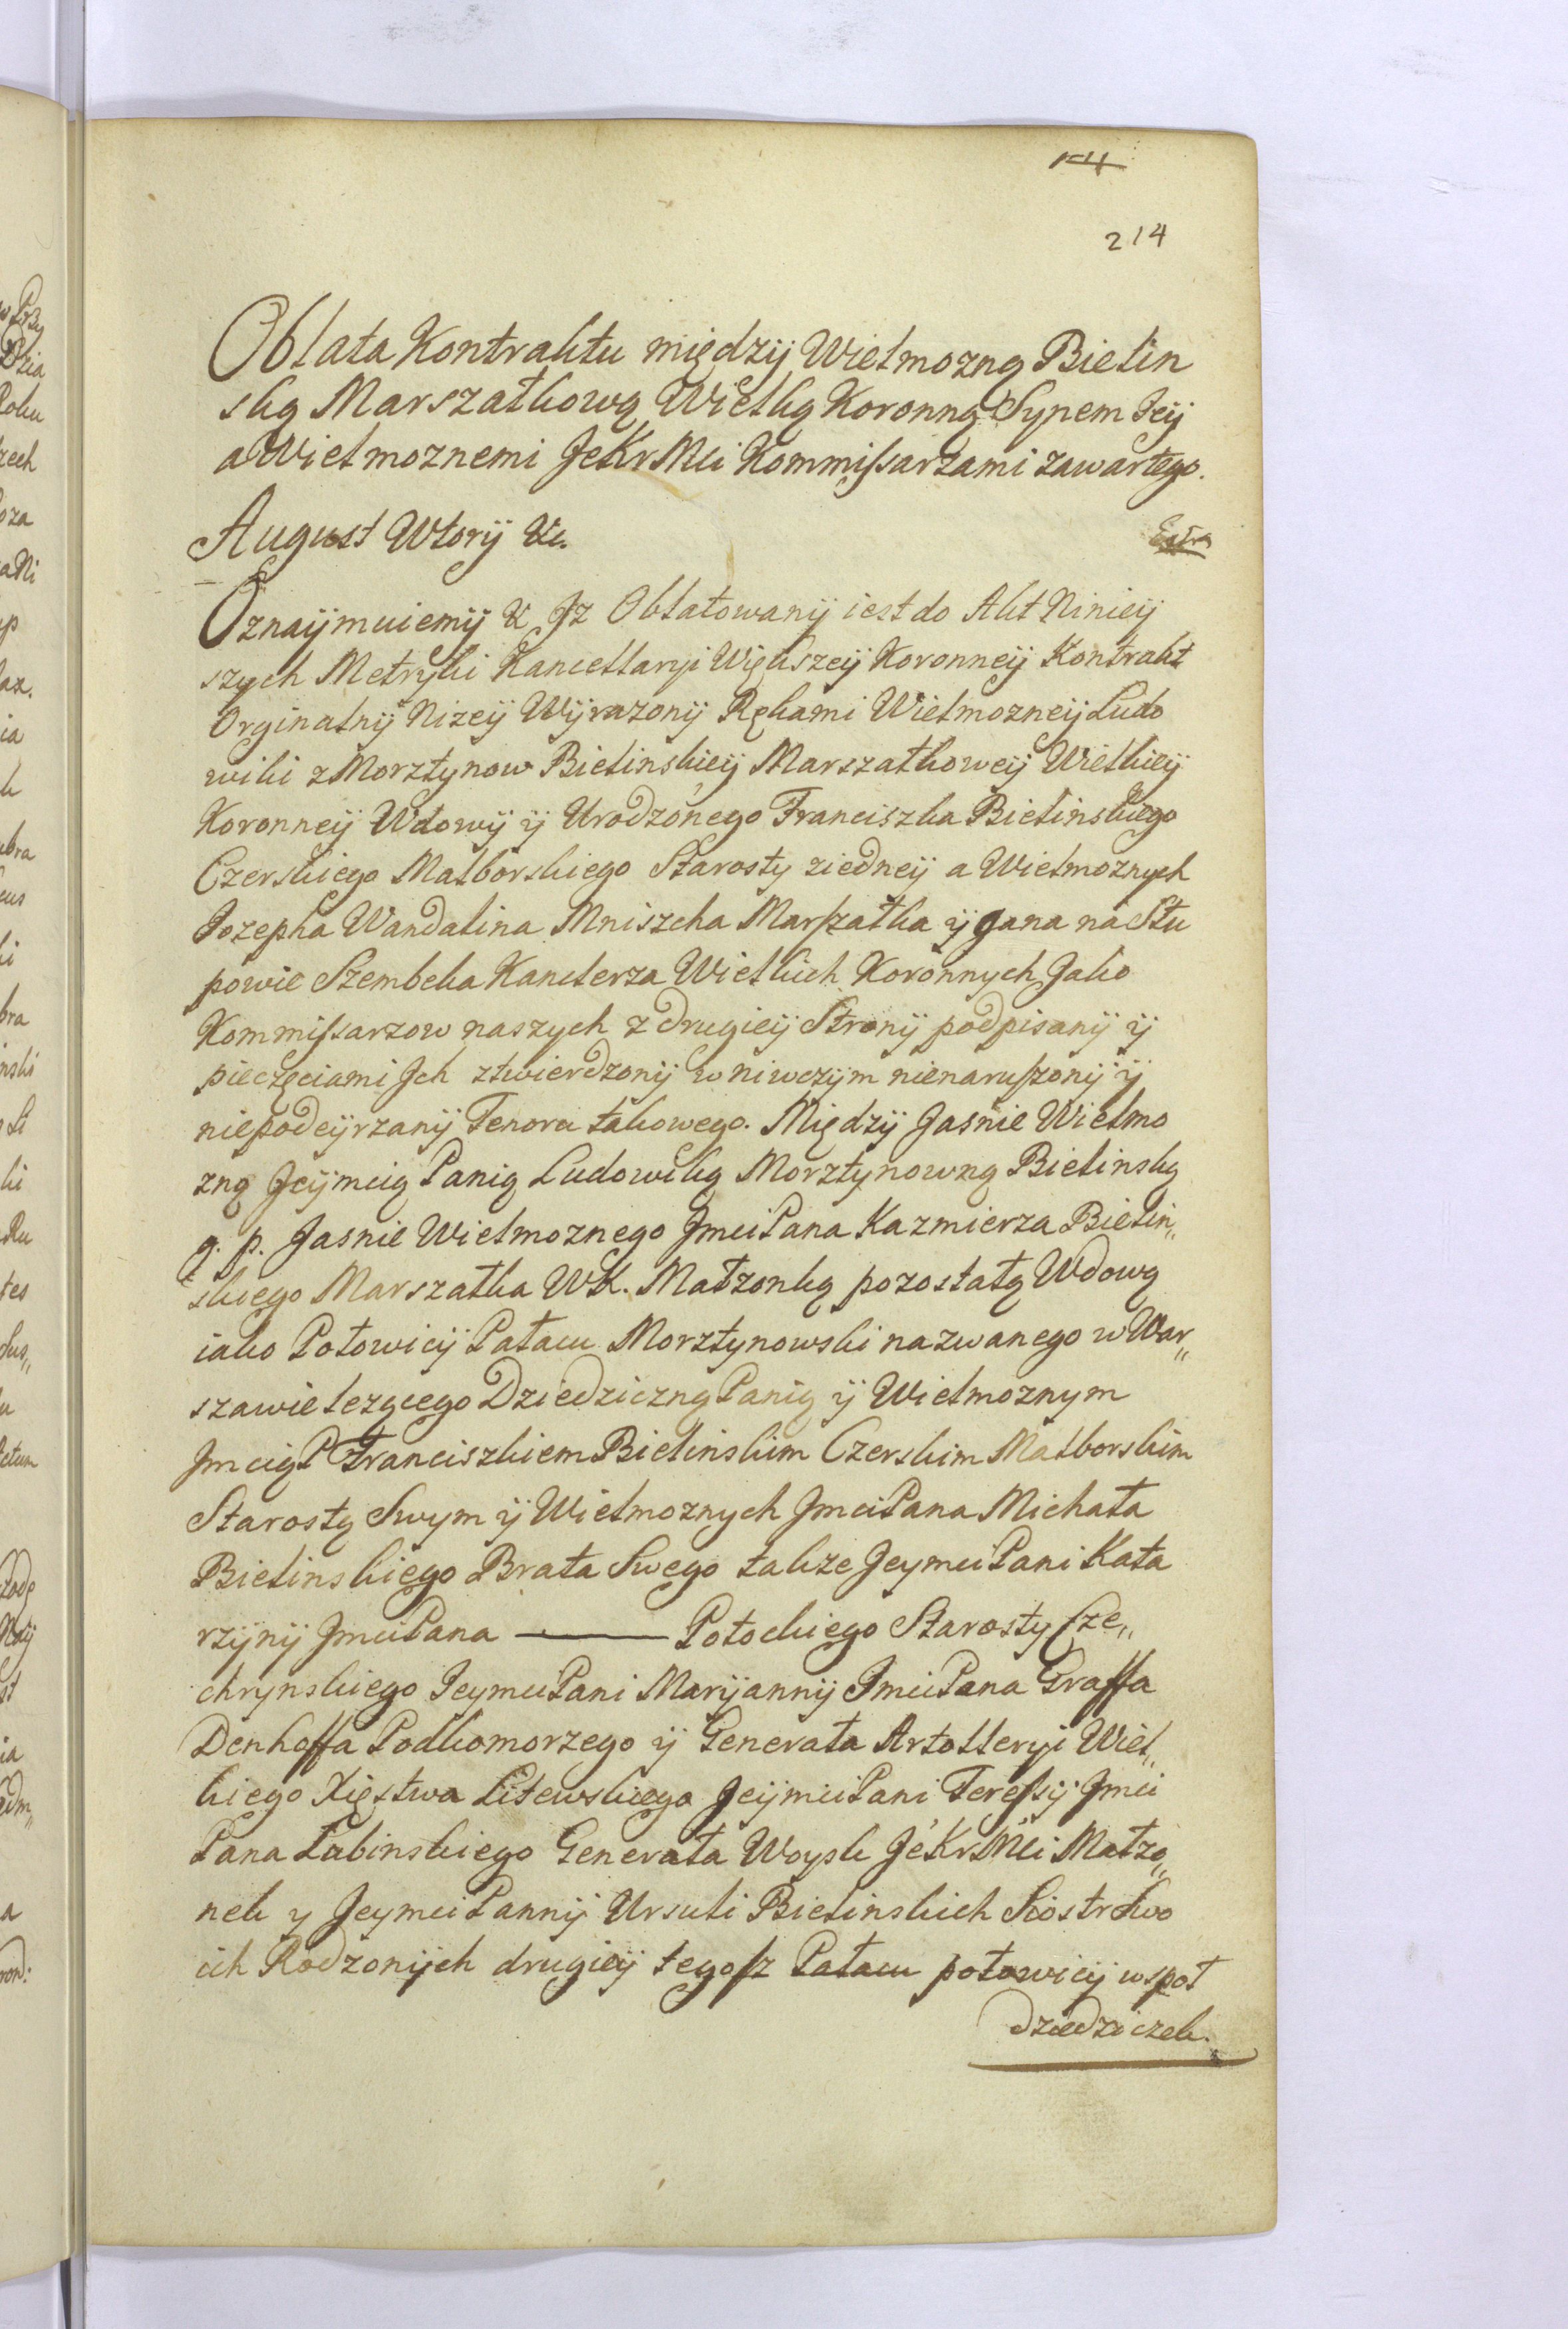 214
Oblata Kontraktu międzÿ Wielmozną Bielin
ską Marszałkową Wielką Koronną Synem Jeÿ
a Wielmoznemi JeKrMci Kommissarzami zawartego.
August Wtorÿ &c.
Oznaÿmuiemÿ &c Jz Oblatowanÿ iest do Akt Ninieÿ
szych Metryki Kancellaryi Większeÿ Koronneÿ Kontrakt
Orginalnÿ Nizeÿ Wÿrazonÿ Rękami Wielmozneÿ Ludo
wiki z Morztynow Bielinskieÿ Marszałkoweÿ Wielkieÿ
Koronneÿ Wdowÿ ÿ Urodzonego Franciszka Bielinskiego
Czerskiego Malborskiego Starosty ziedneÿ a Wielmoznych
Jozepha Wandalina Mniszcha Marszałka ÿ Jana na Słu
powie Szembeka Kanclerza Wielkich Koronnych Jako
Kommissarzow naszych z drugieÿ Stronÿ podpisanÿ ÿ
pieczęciami Jch ztwierdzonÿ w niwczÿm nienaruszonÿ ÿ
niepodeÿrzanÿ Tenoru takowego. Międzÿ Jasnie Wielmo
zną Jeÿmcią Panią Ludowiką Morztynowną Bielinską
g. p. Jasnie Wielmoznego JmciPana Kazmierza Bielin„
skiego Marszałka WK. Małzonką pozostałą Wdową
iako Połowicÿ Pałacu Morztynowski nazwanego w War„
szawie lezącego Dziedziczną Panią ÿ Wielmoznym
JmciąP Franciszkiem Bielinskim Czerskim Malborskim
Starostą Swym ÿ Wielmoznych JmciPana Michała
Bielinskiego Brata Swego takze JeymciPani Kata
rzÿnÿ JmciPana ——— Potockiego Starosty Cze„
chrynskiego JeymciPani Marÿannÿ JmciPana Graffa
Denhoffa Podkomorzego ÿ Generała Artolleryi Wiel„
kiego Xięstwa Litewskiego JeÿmciPani Teressÿ Jmci
Pana Łubinskiego Generała Woysk JéKrMci Małzo„
nek y JeymciPannÿ Ursuli Bielinskich Siostr Swo
ich Rodzonÿch drugieÿ tegosz Pałacu połowicÿ wspoł
dziedziczek.